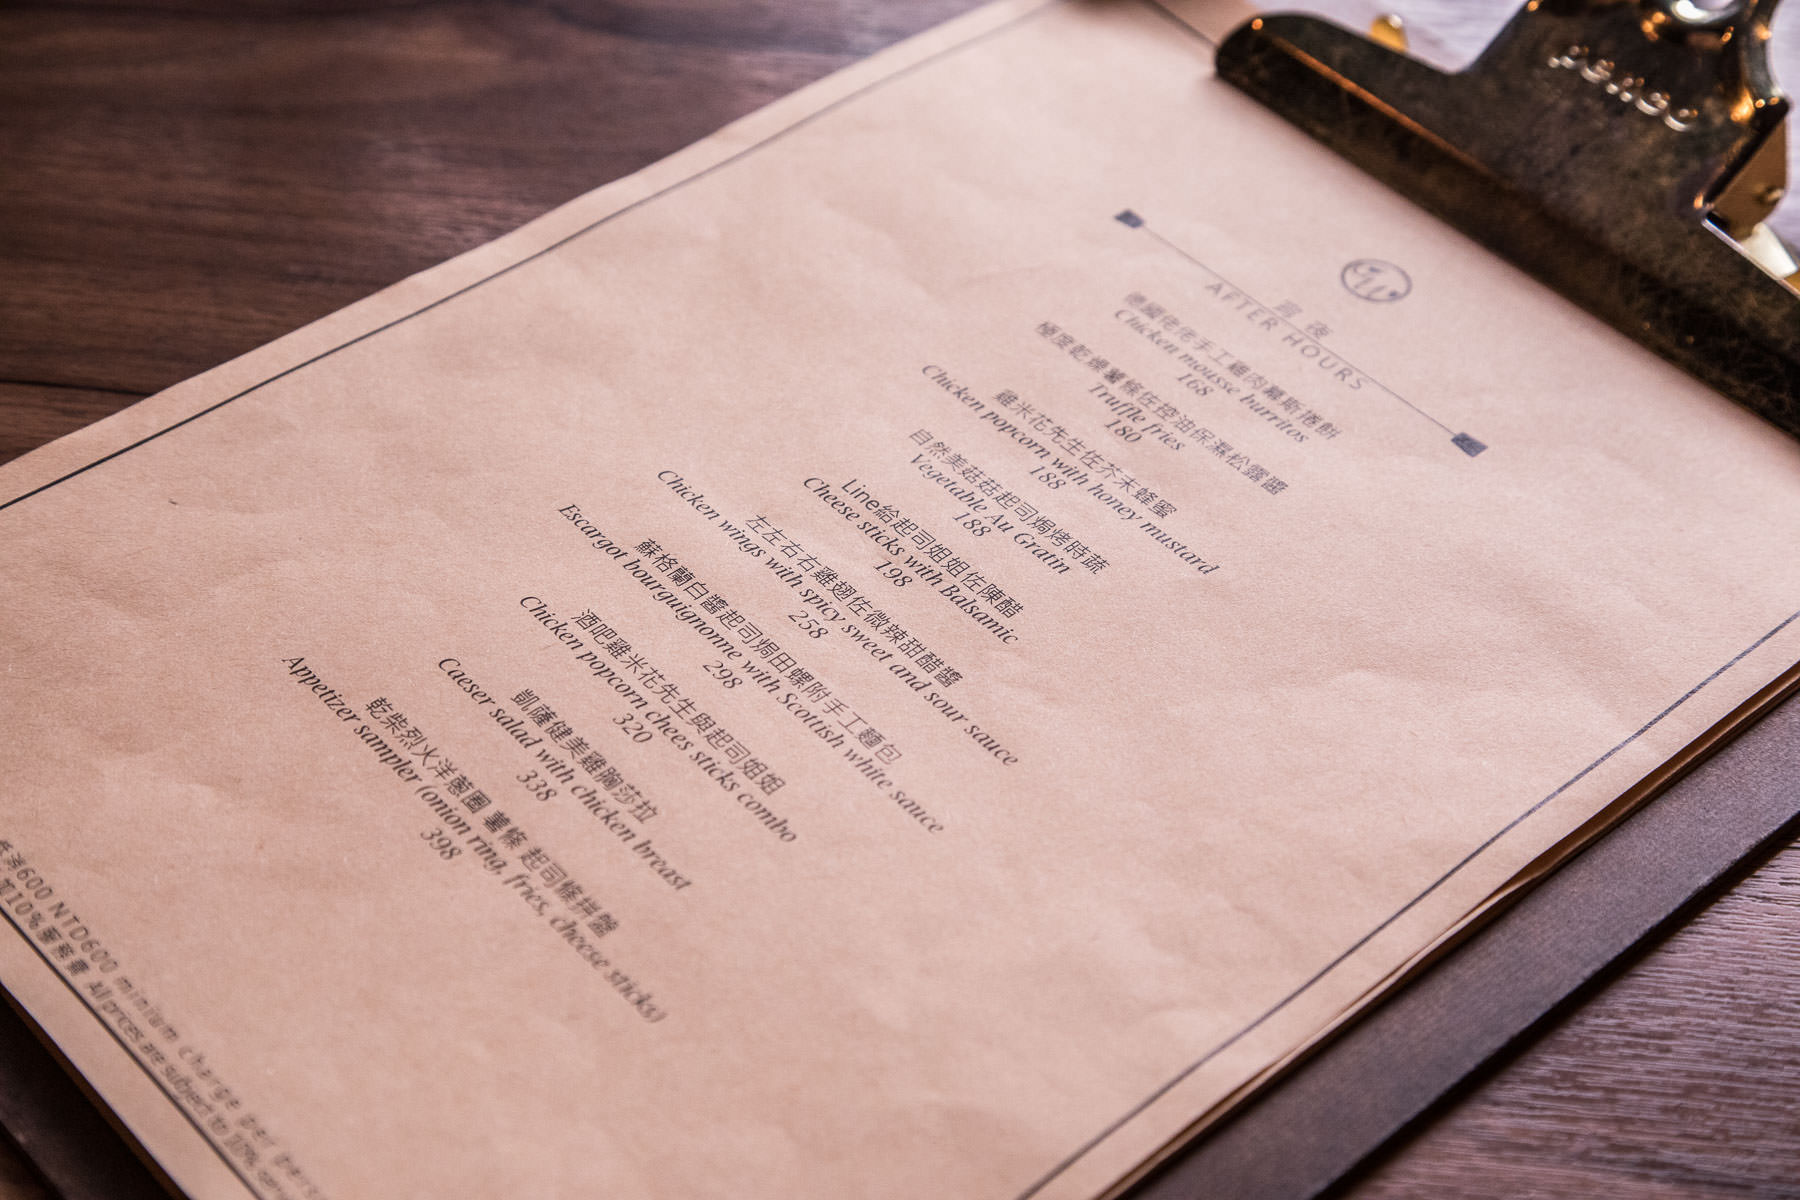 宵夜
AFTER HOURS
德國佬佬手工雞肉慕斯捲餅
Chicken mousse burritos
168
極度乾燥薯條佐控油保濕松露醬
Truffle fries
180
雞米花先生佐芥末蜂蜜
Chicken popcorn with honey mustard
188
自然美菇菇起司焗烤時蔬
Vegetable Au Gratin
188
Line給起司姐姐佐陳醋
Cheese sticks with Balsamic
198
左左右右雞翅佐微辣甜醋醬
Chicken wings with spicy sweet and sour sauce
258
蘇格蘭白醬起司焗田螺附手工麵包
Escargot bourguignonne with Scottish white sauce
298
酒吧雞米花先生與起司姐姐
Chicken popcorn chees sticks combo
320
凱薩健美雞胸莎拉
Caeser salad with chicken breast
338
乾柴烈火洋蔥圈 薯條 起司條拼盤
Appetizer sampler (onion ring, fries, cheese sticks)
398
低消600 NTD600 minium charge per pers
加10%服務費 All prices are subject to 10%